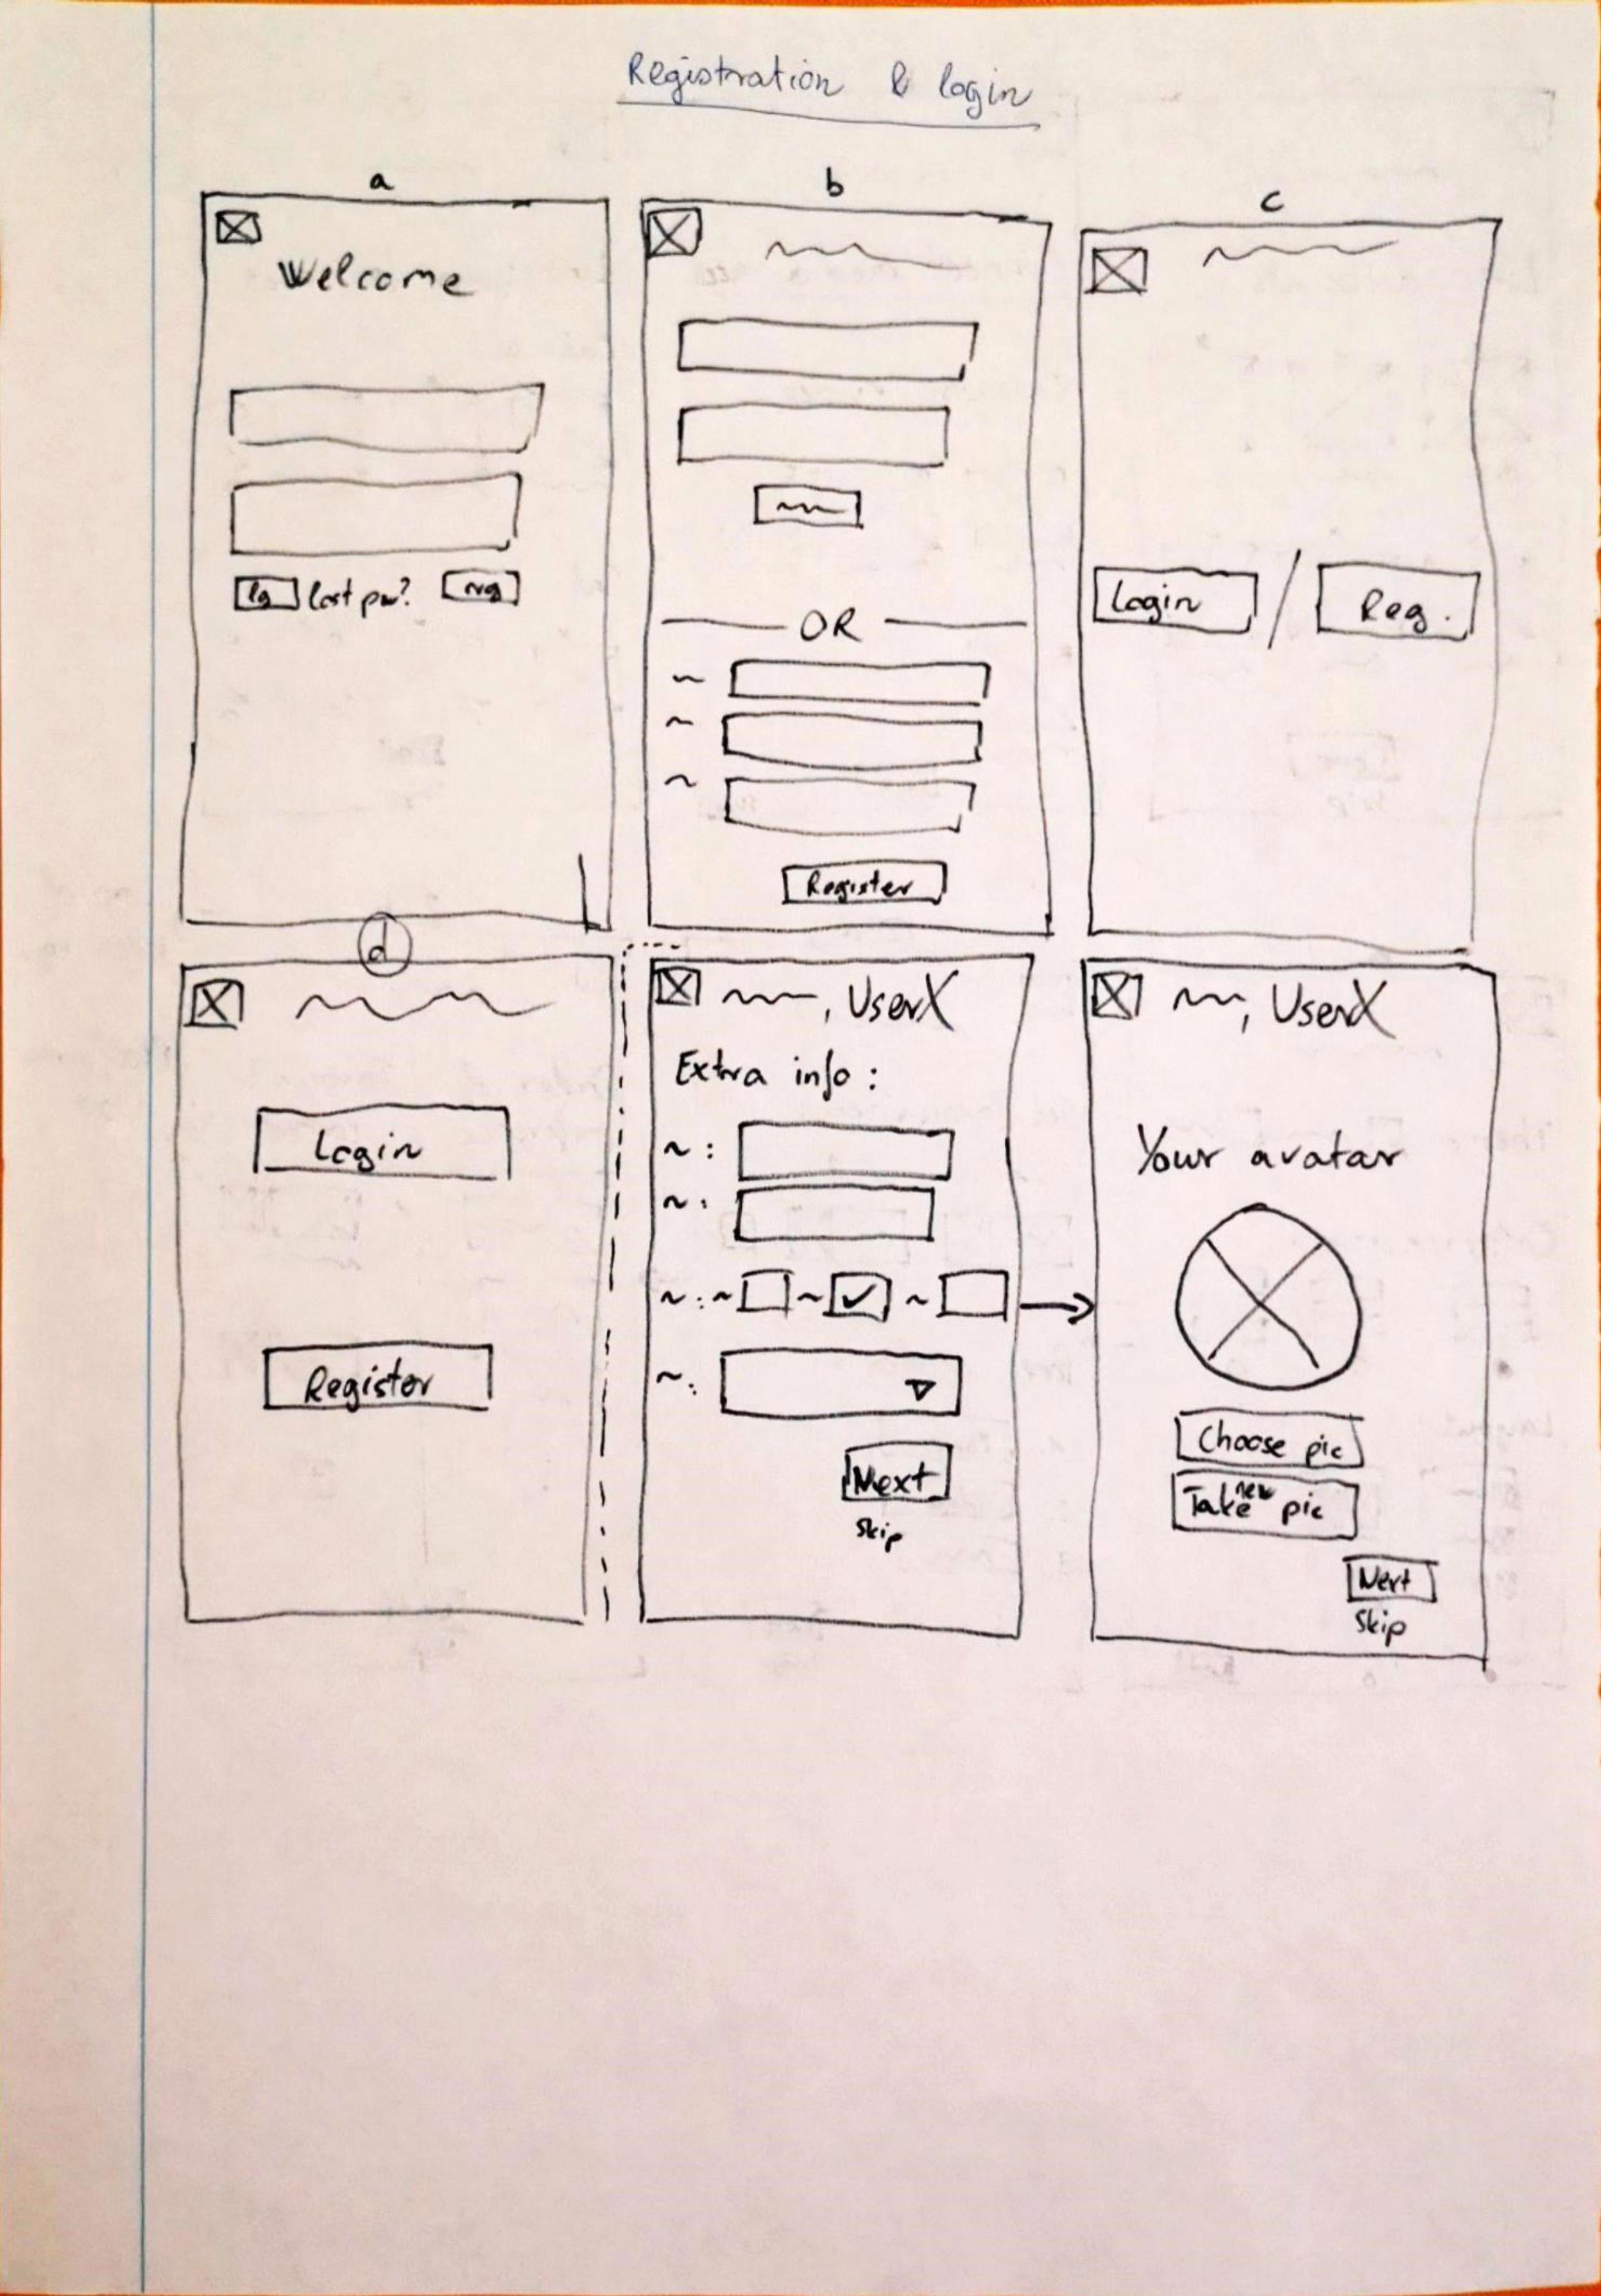 Registration & login
a
Welcome
lg lost pw? reg
b
OR
Register
c
Login / Reg.
d
Login
Register
, UserX
Extra info :
Next
Skip
, UserX
Your avatar
Choose pic
Take new pic
Next
Skip